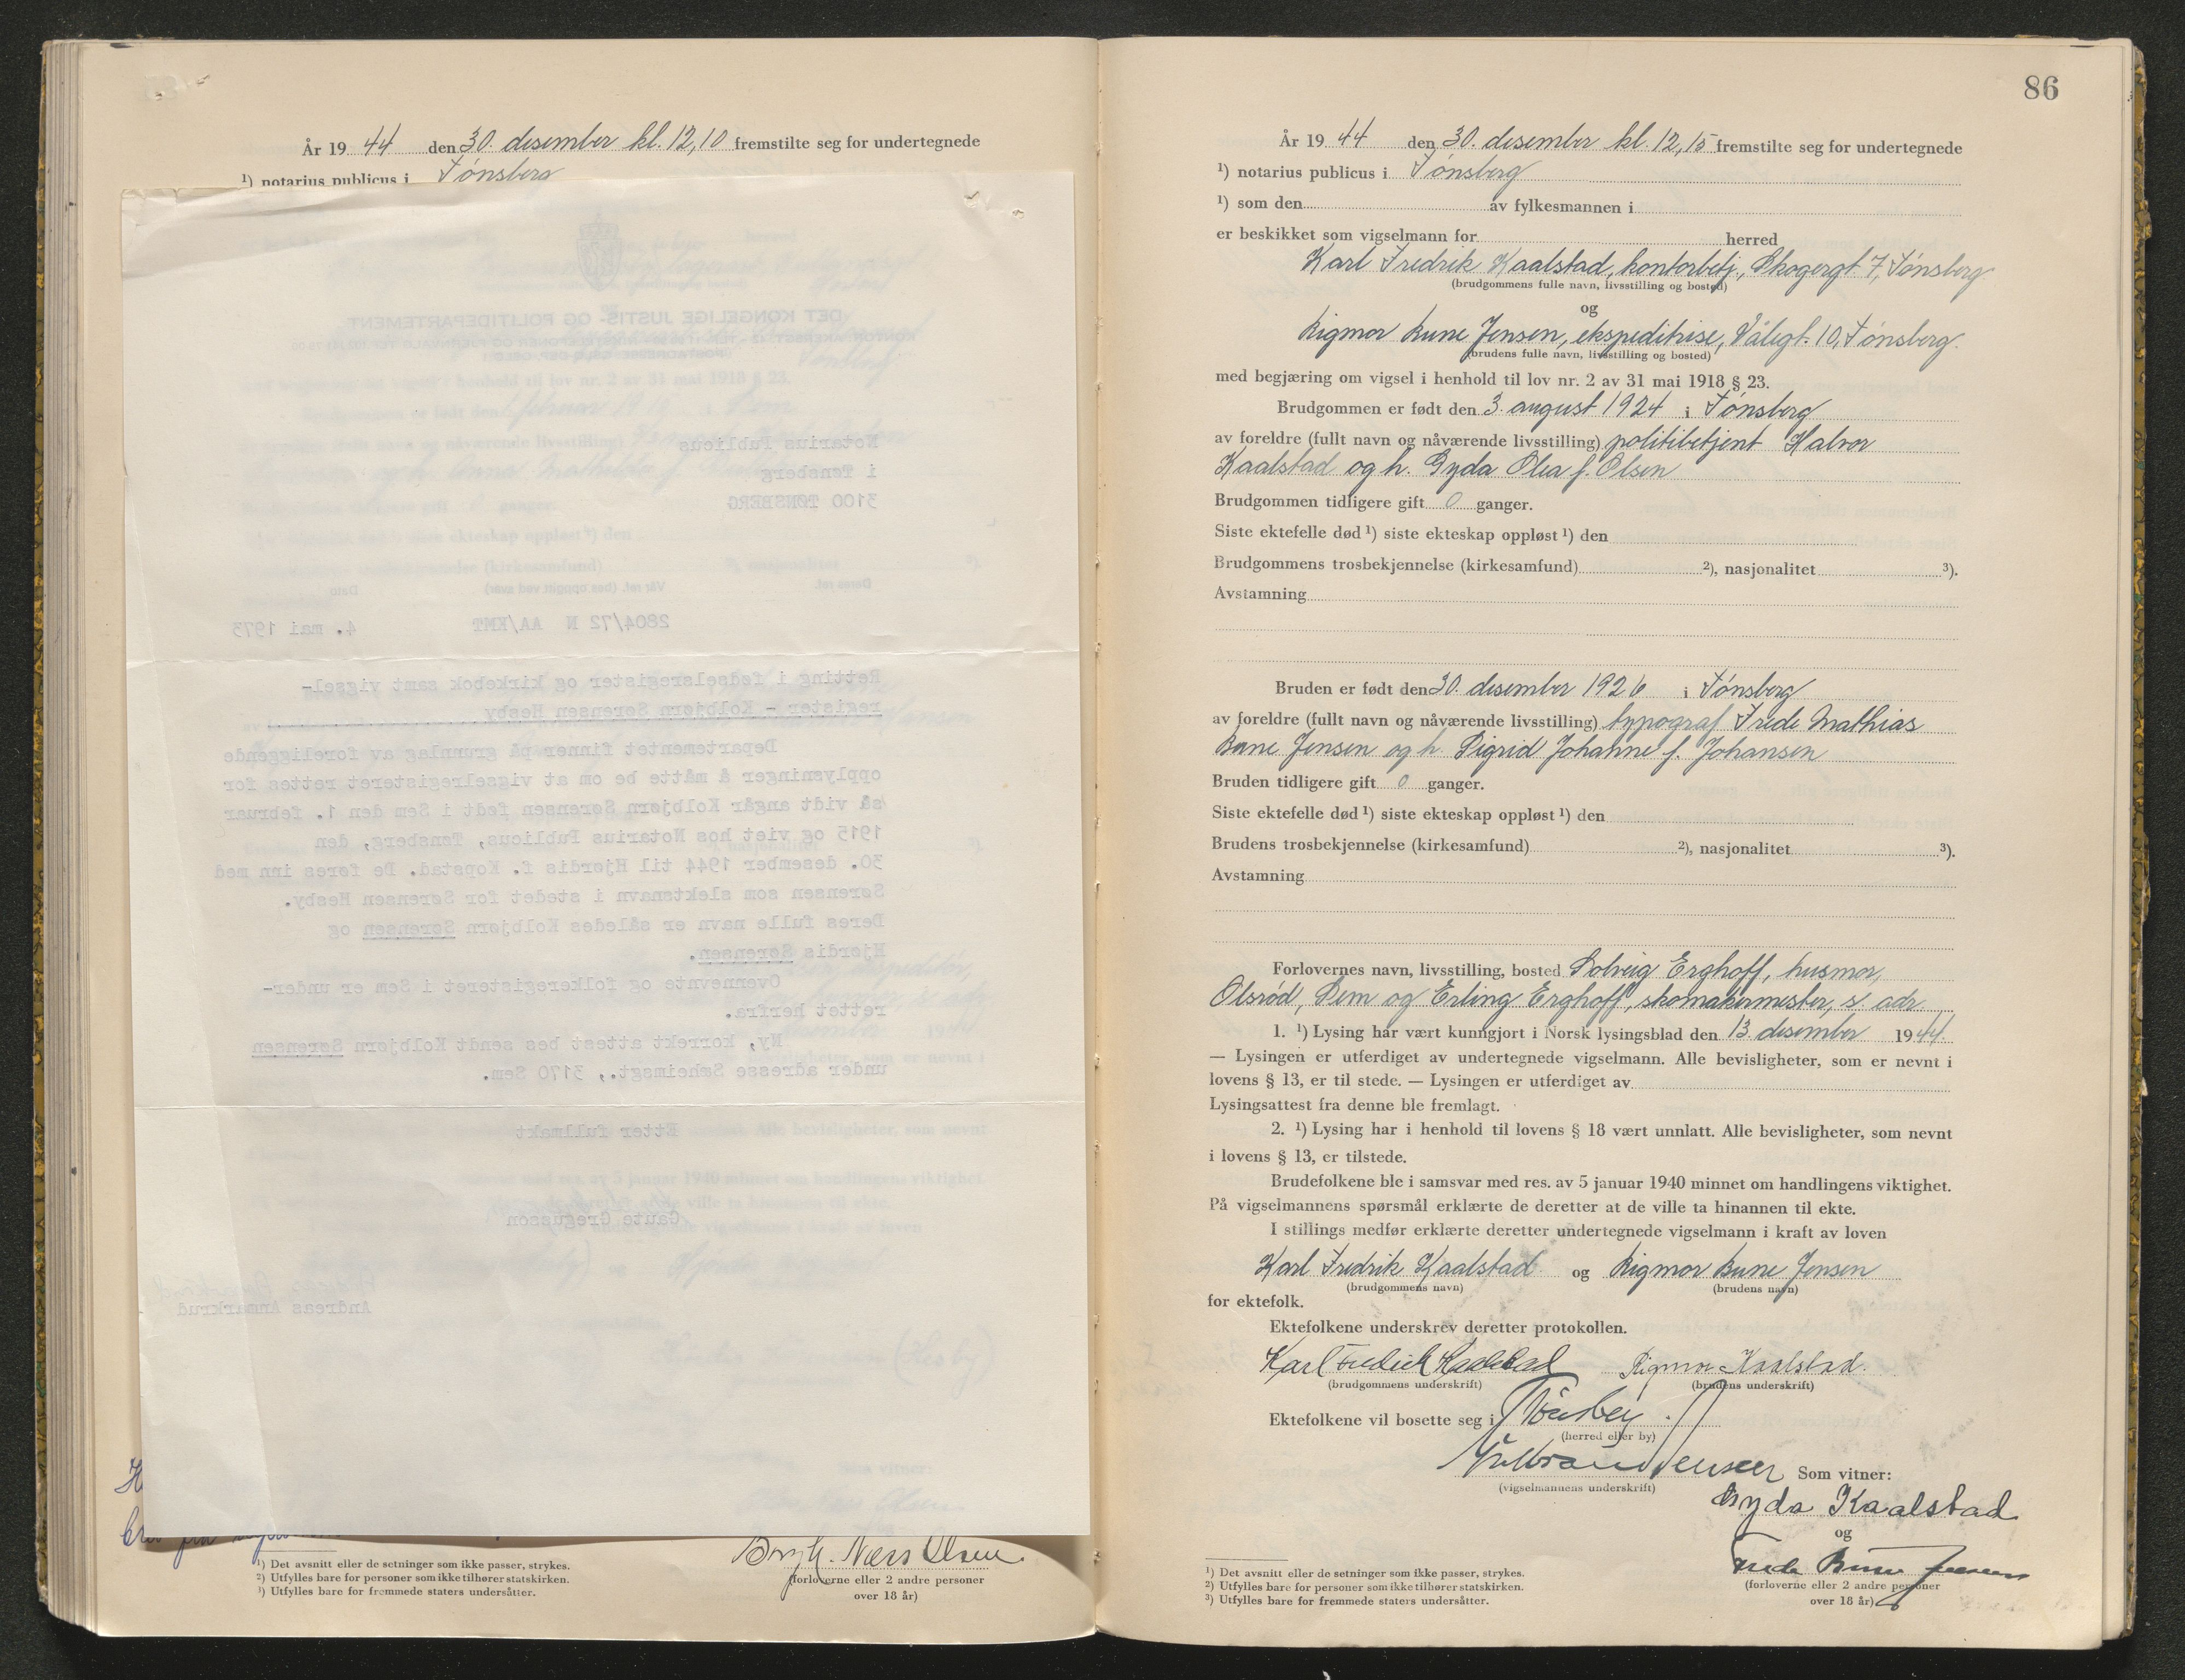 År 19 44 den 30. desember kl. 12,10 fremstilte seg for undertegnede
¹) notarius publicus i Tønsberg
DET KONGELIGE JUSTIS- OG POLITIDEPARTEMENT
Notarius Publicus
i Tønsberg
3100 TØNSBERG
Deres ref. Vår ref. (bes oppgitt ved svar) Dato
2804/72 N AA/KMT 4. mai 1973
Retting i fødselsregister og kirkebok samt vigsel-
register - Kolbjørn Sørensen Hesby
Departementet finner på grunnlag av foreliggende
opplysninger å måtte be om at vigselregisteret rettes for
så vidt angår Kolbjørn Sørensen født i Sem den 1. februar
1915 og viet hos Notarius Publicus, Tønsberg, den
30. desember 1944 til Hjørdis f. Kopstad. De føres inn med
Sørensen som slektsnavn i stedet for Sørensen Hesby.
Deres fulle navn er således Kolbjørn Sørensen og
Hjørdis Sørensen.
Ovennevnte og folkeregisteret i Sem er under-
rettet herfra.
Ny, korrekt attest bes sendt Kolbjørn Sørensen
under adresse Sæheimsgt., 3170 Sem.
Etter fullmakt
Gaute Gregusson
Andreas Anmarkrud
Som vitner:
Borgh. Næss Olsen
(forloverne eller 2 andre personer
over 18 år)
¹) Det avsnitt eller de setninger som ikke passer, strykes.
²) Utfylles bare for personer som ikke tilhører statskirken.
³) Utfylles bare for fremmede staters undersåtter.
86
År 19 44 den 30. desember kl. 12,15 fremstilte seg for undertegnede
¹) notarius publicus i Tønsberg
¹) som den av fylkesmannen i
er beskikket som vigselmann for herred
Karl Fredrik Kaalstad, kontorbetj., Skogergt. 7, Tønsberg
(brudgommens fulle navn, livsstilling og bosted)
og
Rigmor Bune Jensen, ekspeditrise, Vålegt. 10, Tønsberg.
(brudens fulle navn, livsstilling og bosted)
med begjæring om vigsel i henhold til lov nr. 2 av 31 mai 1918 § 23.
Brudgommen er født den 3. august 1924 i Tønsberg
av foreldre (fullt navn og nåværende livsstilling) politibetjent Halvor
Kaalstad og h. Gyda Olea f. Olsen
Brudgommen tidligere gift 0 ganger.
Siste ektefelle død ¹) siste ekteskap oppløst ¹) den
Brudgommens trosbekjennelse (kirkesamfund) ²), nasjonalitet ³).
Avstamning
Bruden er født den 30. desember 1926 i Tønsberg
av foreldre (fullt navn og nåværende livsstilling) typograf Frede Mathias
Bune Jensen og h. Sigrid Johanne f. Johansen
Bruden tidligere gift 0 ganger.
Siste ektefelle død ¹) siste ekteskap oppløst ¹) den
Brudens trosbekjennelse (kirkesamfund) ²), nasjonalitet ³).
Avstamning
Forlovernes navn, livsstilling, bosted Solveig Erghoff, husmor,
Olsrød, Sem og Erling Erghoff, skomakermester, s. adr.
1. ¹) Lysing har vært kunngjort i Norsk lysingsblad den 13 desember 1944
— Lysingen er utferdiget av undertegnede vigselmann. Alle bevisligheter, som er nevnt i
lovens § 13, er til stede. — Lysingen er utferdiget av
Lysingsattest fra denne ble fremlagt.
2. ¹) Lysing har i henhold til lovens § 18 vært unnlatt. Alle bevisligheter, som nevnt
i lovens § 13, er tilstede.
Brudefolkene ble i samsvar med res. av 5 januar 1940 minnet om handlingens viktighet.
På vigselmannens spørsmål erklærte de deretter at de ville ta hinannen til ekte.
I stillings medfør erklærte deretter undertegnede vigselmann i kraft av loven
Karl Fredrik Kaalstad og Rigmor Bune Jensen
(brudgommens navn) (brudens navn)
for ektefolk.
Ektefolkene underskrev deretter protokollen.
Karl Fredrik Kaalstad Rigmor Kaalstad.
(brudgommens underskrift) (brudens underskrift)
Ektefolkene vil bosette seg i Tønsberg
(herred eller by)
(vigselmannens underskrift) Som vitner:
Gyda Kaalstad
og
Frede Bune Jensen
(forloverne eller 2 andre personer
over 18 år)
¹) Det avsnitt eller de setninger som ikke passer, strykes.
²) Utfylles bare for personer som ikke tilhører statskirken.
³) Utfylles bare for fremmede staters undersåtter.